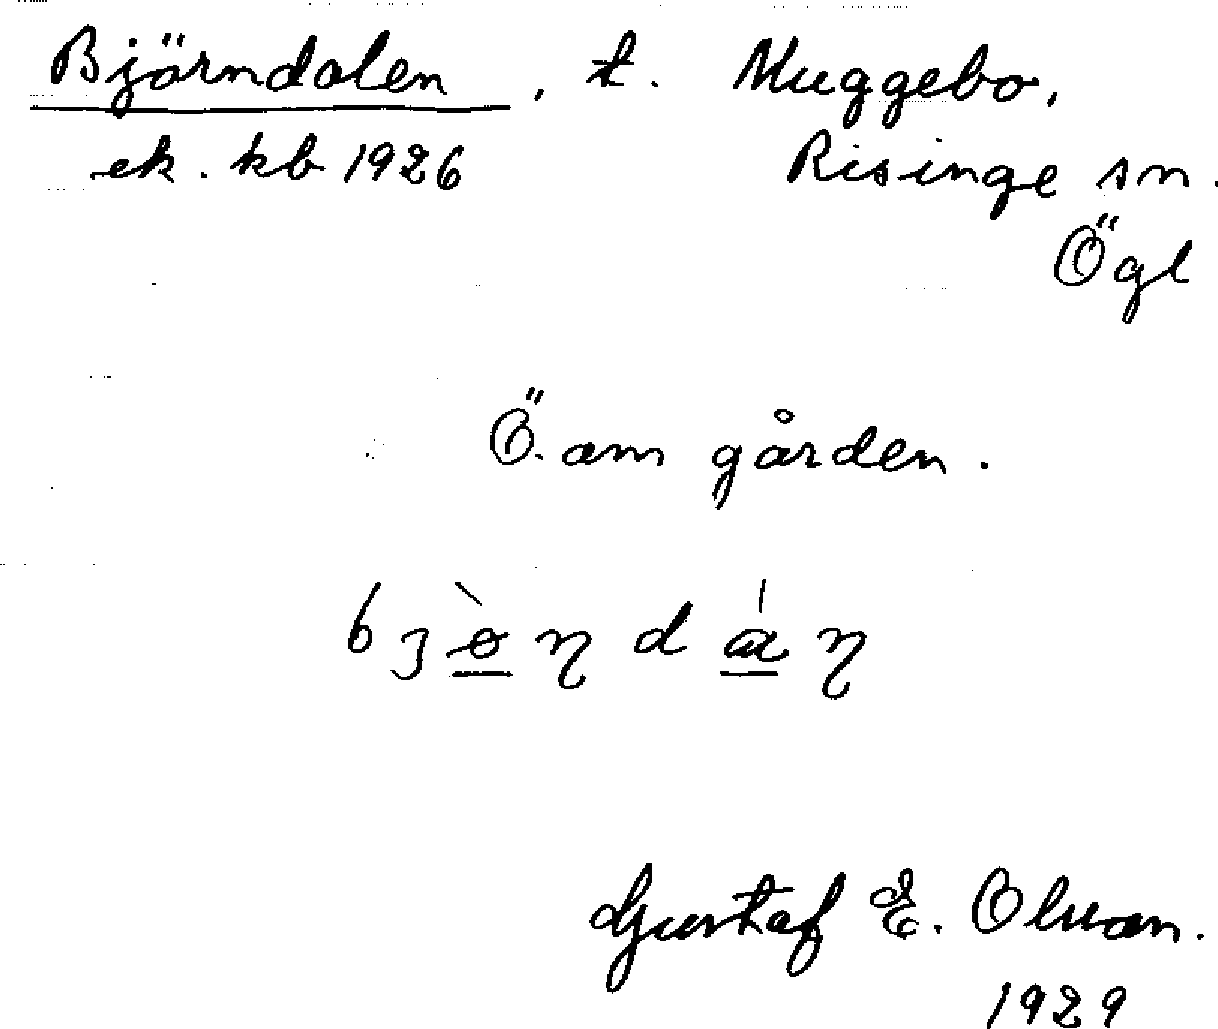 Björndalen, t. Muggebo,
ek. kb 1926 Risinge sn.
Ögl
Ö. om gården.
bjò̱ɳdá̱ɳ
Gustaf E. Olsson.
1929